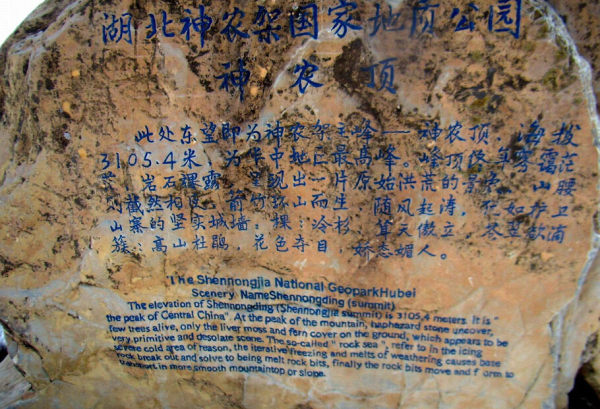 湖北神农架国家地质公园
神农顶
此处东望即为神农架主峰——神农顶,海拔
3105.4米,为华中地区最高峰。峰顶终年雾霭茫
岩石裸露,呈现出一片原始洪荒的景象。山腰
则截然相反,箭竹环山而生,随风起涛,犹如护卫
山寨的坚实城墙;棵棵冷杉,笔天傲立,苍翠欲滴
簇簇高山杜鹃,花色夺目,娇态媚人。
The Shennongjia National GeoparkHubei
Scenery NameShennongding (summit)
The elevation of Shennongding (Shennongjia summit) is 3105.4 meters. It is "
the peak of Central China". At the peak of the mountain, haphazard stone uncover,
few trees alive, only the liver moss and fern cover on the ground, which appears to be
very primitive and desolate scene. The so-called " rock sea ", refer to in the icing
severe cold area of reason, the iterative freezing and melts of weathering causes base
rock break out and solve to being melt rock bits, finally the rock bits move and form to
transport in more smooth mountaintop or slope.